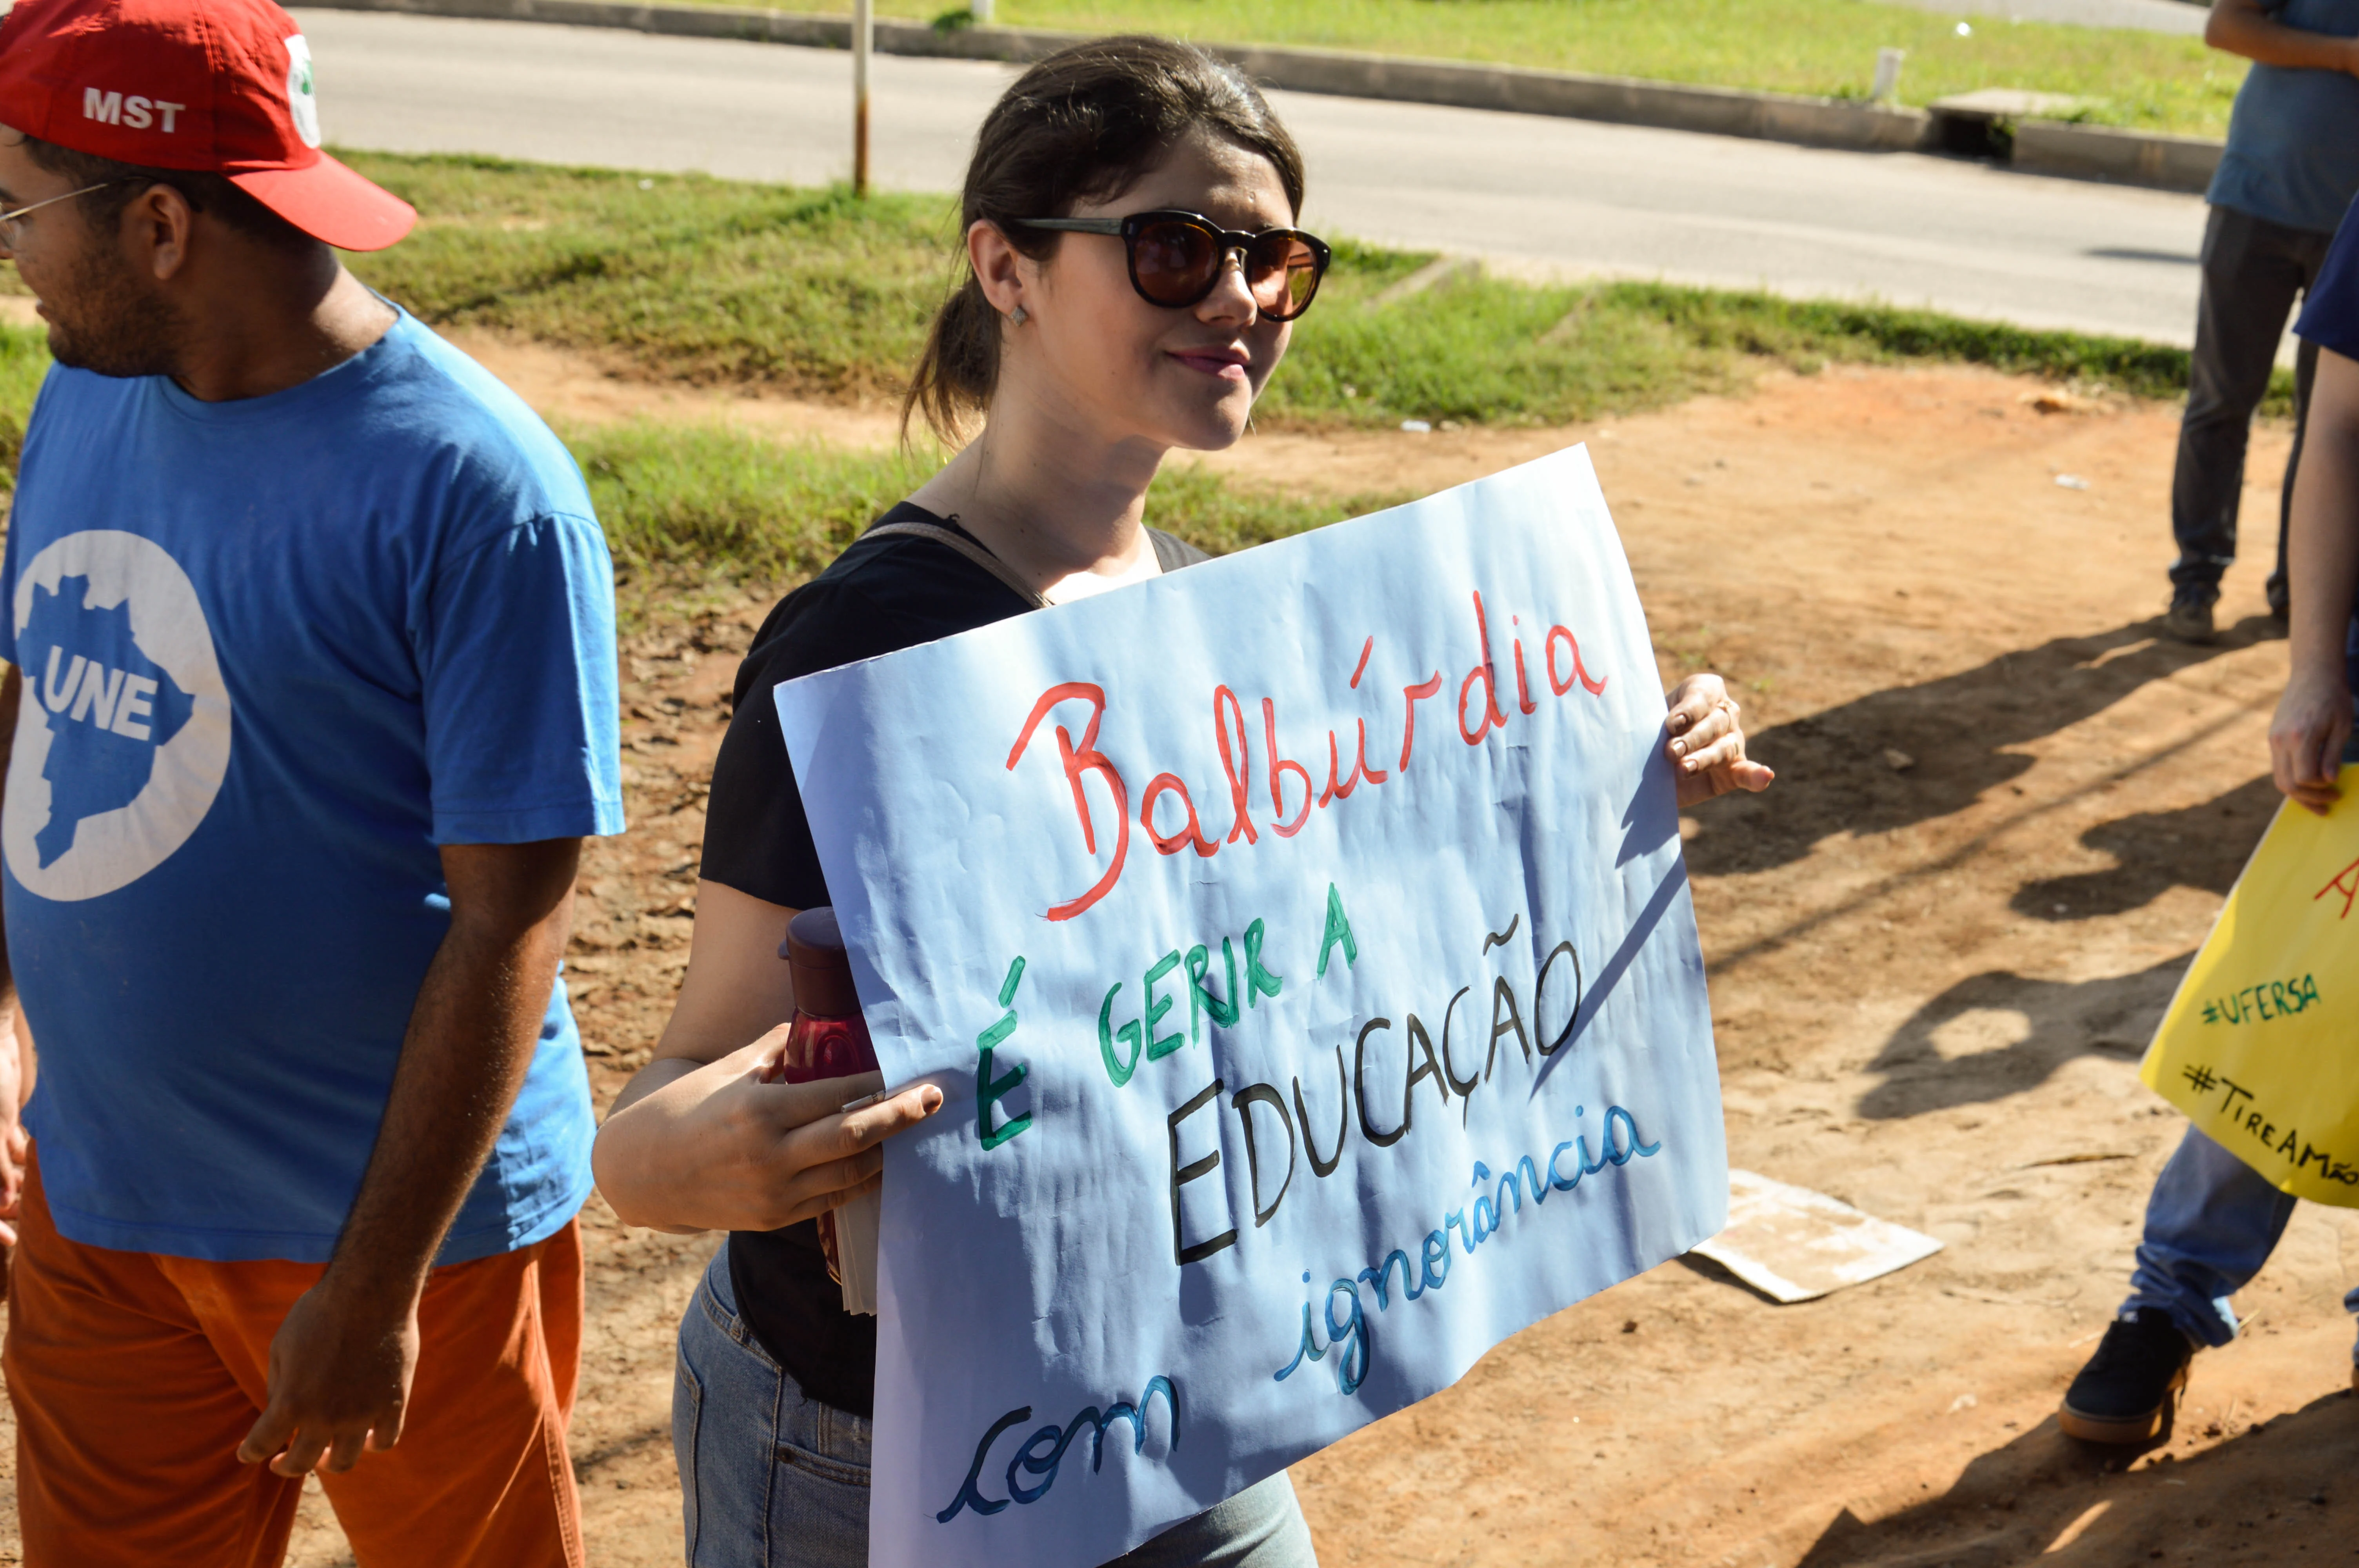 MST
UNE
Balbúrdia
É GERIR A
EDUCAÇÃO
com ignorância
#UFERSA
#TIREAMão